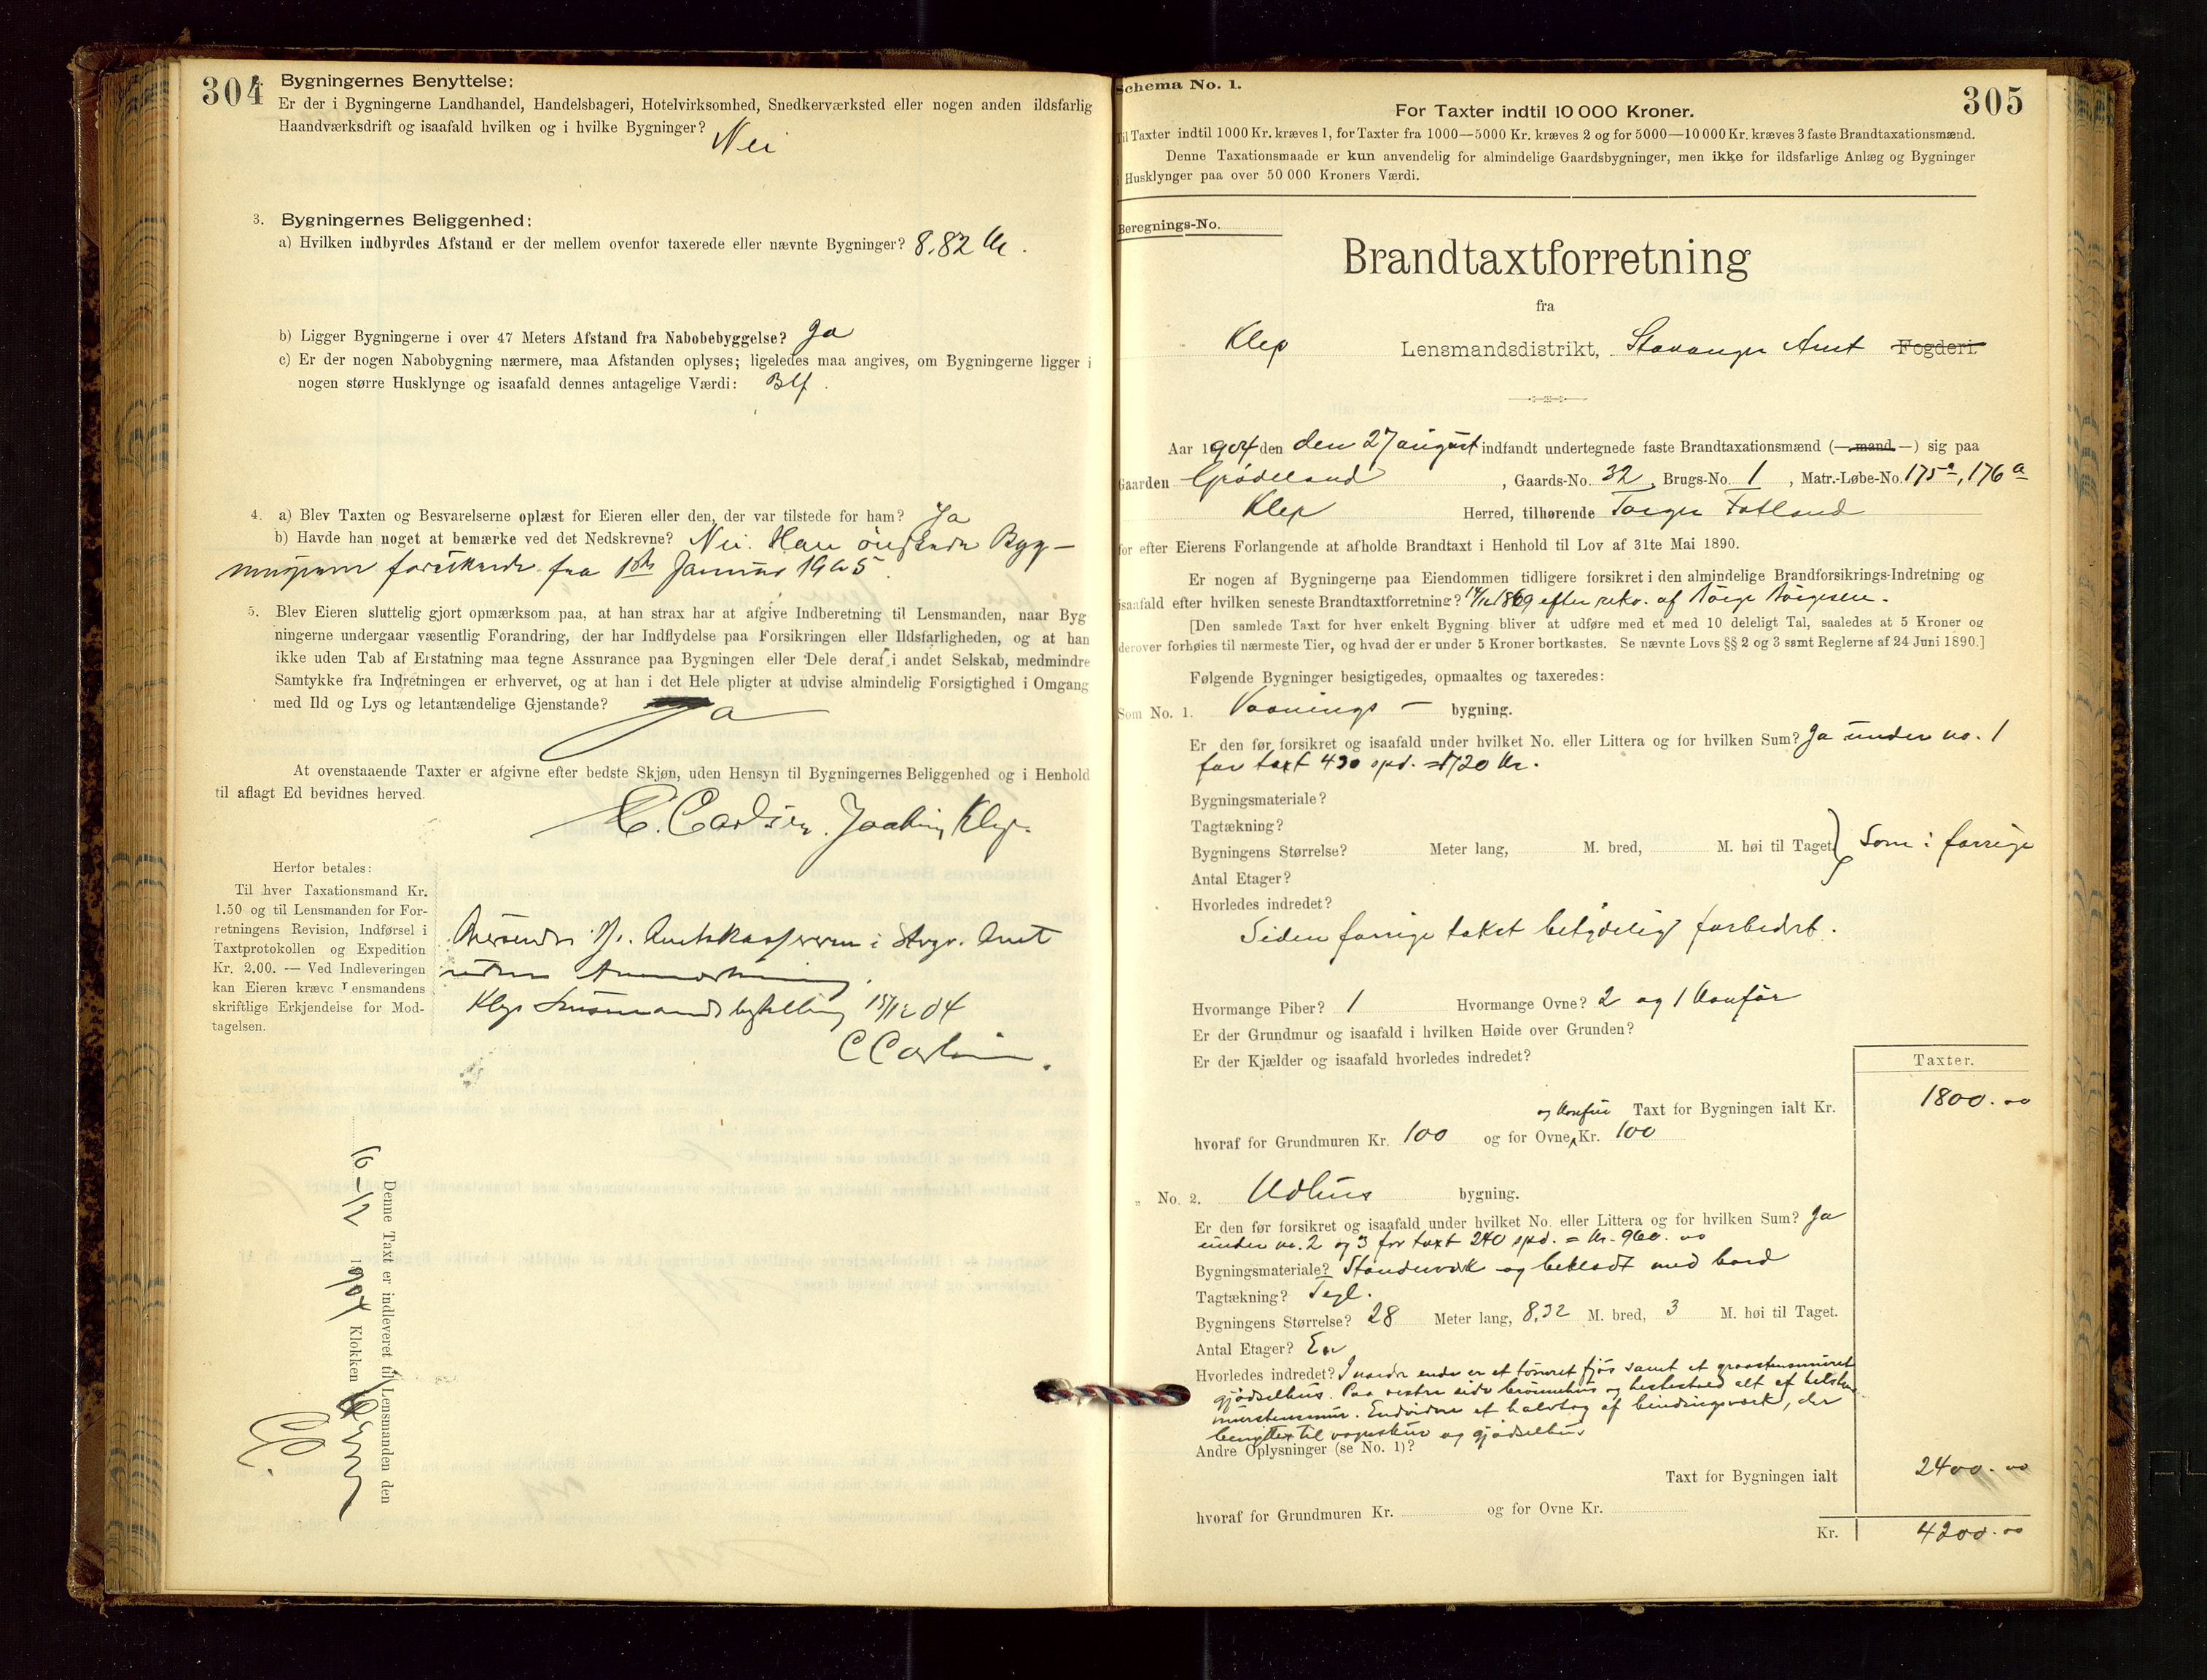 304
Bygningernes Benyttelse:
Er der i Bygningerne Landhandel, Handelsbageri, Hotelvirksomhed, Snedkerværksted eller nogen anden ildsfarlig
Haandværksdrift og isaafald hvilken og i hvilke Bygninger? Nei
3. Bygningernes Beliggenhed:
a) Hvilken indbyrdes Afstand er der mellem ovenfor taxerede eller nævnte Bygninger? 8.82 M.
b) Ligger Bygningerne i over 47 Meters Afstand fra Nabobebyggelse? Ja
c) Er der nogen Nabobygning nærmere, maa Afstanden oplyses; ligeledes maa angives, om Bygningerne ligger i
nogen større Husklynge og isaafald dennes antagelige Værdi:
4. a) Blev Taxten og Besvarelserne oplæst for Eieren eller den, der var tilstede for ham? Ja
b) Havde han noget at bemærke ved det Nedskrevne? Nei. Han ønskede Byg-
ningerne forsikrede fra 1ste Januar 1905.
5. Blev Eieren sluttelig gjort opmærksom paa, at han strax har at afgive Indberetning til Lensmanden, naar Byg
ningerne undergaar væsentlig Forandring, der har Indflydelse paa Forsikringen eller Ildsfarligheden, og at han
ikke uden Tab af Erstatning maa tegne Assurance paa Bygningen eller Dele deraf i andet Selskab, medmindre
Samtykke fra Indretningen er erhvervet, og at han i det Hele pligter at udvise almindelig Forsigtighed i Omgang
med Ild og Lys og letantændelige Gjenstande? Ja
At ovenstaaende Taxter er afgivne efter bedste Skjøn, uden Hensyn til Bygningernes Beliggenhed og i Henhold
til aflagt Ed bevidnes herved.
C. Carlsen. Joakim Klep.
Herfor betales:
Til hver Taxationsmand Kr.
1.50 og til Lensmanden for For-
retningens Revision, Indførsel i
Taxtprotokollen og Expedition
Kr. 2.00. — Ved Indleveringen
kan Eieren kræve Lensmandens
skriftlige Erkjendelse for Mod-
tagelsen.
Oversendes Hr. Amtskassereren i Stvgr. Amt
uden Anmerkning.
Klep Lensmandsbestilling 15/12 04
C Carlsen.
Denne Taxt er indleveret til Lensmanden den
16-12 1904 Klokken
CC.
Schema No. 1.
305
For Taxter indtil 10 000 Kroner.
Til Taxter indtil 1000 Kr. kræves 1, for Taxter fra 1000—5000 Kr. kræves 2 og for 5000—10 000 Kr. kræves 3 faste Brandtaxationsmænd.
Denne Taxationsmaade er kun anvendelig for almindelige Gaardsbygninger, men ikke for ildsfarlige Anlæg og Bygninger
i Husklynger paa over 50 000 Kroners Værdi.
Beregnings-No.
Brandtaxtforretning
fra
Klep Lensmandsdistrikt, Stavanger Amt Fogderi
Aar 1904 den den 27 august indfandt undertegnede faste Brandtaxationsmænd (— mand —) sig paa
Gaarden Grødeland, Gaards-No. 32, Brugs-No. 1, Matr.-Løbe-No. 175a, 176a
Klep Herred, tilhørende Torger Fotland
for efter Eierens Forlangende at afholde Brandtaxt i Henhold til Lov af 31te Mai 1890.
Er nogen af Bygningerne paa Eiendommen tidligere forsikret i den almindelige Brandforsikrings-Indretning og
isaafald efter hvilken seneste Brandtaxtforretning? 1869 efter rekv. af Børge Børgesen.
[Den samlede Taxt for hver enkelt Bygning bliver at udføre med et med 10 deleligt Tal, saaledes at 5 Kroner og
derover forhøies til nærmeste Tier, og hvad der er under 5 Kroner bortkastes. Se nævnte Lovs §§ 2 og 3 samt Reglerne af 24 Juni 1890.]
Følgende Bygninger besigtigedes, opmaaltes og taxeredes:
Som No. 1. Vaanings- bygning.
Er den før forsikret og isaafald under hvilket No. eller Littera og for hvilken Sum? Ja under no. 1
for taxt 430 spd. = 1720 Kr.
Bygningsmateriale?
Tagtækning?
Bygningens Størrelse? Meter lang, M. bred, M. høi til Taget. } Som i forrige
Antal Etager?
Hvorledes indredet?
Siden forrige takst betydelig forbedret.
Hvormange Piber? 1 Hvormange Ovne? 2 og 1 Komfør
Er der Grundmur og isaafald i hvilken Høide over Grunden?
Er der Kjælder og isaafald hvorledes indredet?
Taxter.
Taxt for Bygningen ialt Kr. 1800.00
og Komfør
hvoraf for Grundmuren Kr. 100 og for Ovne Kr. 100
„ No. 2. Udhus bygning.
Er den før forsikret og isaafald under hvilket No. eller Littera og for hvilken Sum? Ja
under no. 2 og 3 for taxt 240 spd. = Kr. 960.00
Bygningsmateriale? Standerværk og beklædt med bord
Tagtækning? Tegl.
Bygningens Størrelse? 28 Meter lang, 8.32 M. bred, 3 M. høi til Taget.
Antal Etager? En
Hvorledes indredet? I nordre ende er et tømret fjøs samt et graastensmuret
gjødselhus. Paa vestre side brønnhus og hestestald alt af
murstensmur. Endvidere et halvtag af bindingsværk, der
benyttes til vognskur og gjødselhus
Andre Oplysninger (se No. 1)?
Taxt for Bygningen ialt 2400.00
hvoraf for Grundmuren Kr. og for Ovne Kr.
Kr. 4200.00